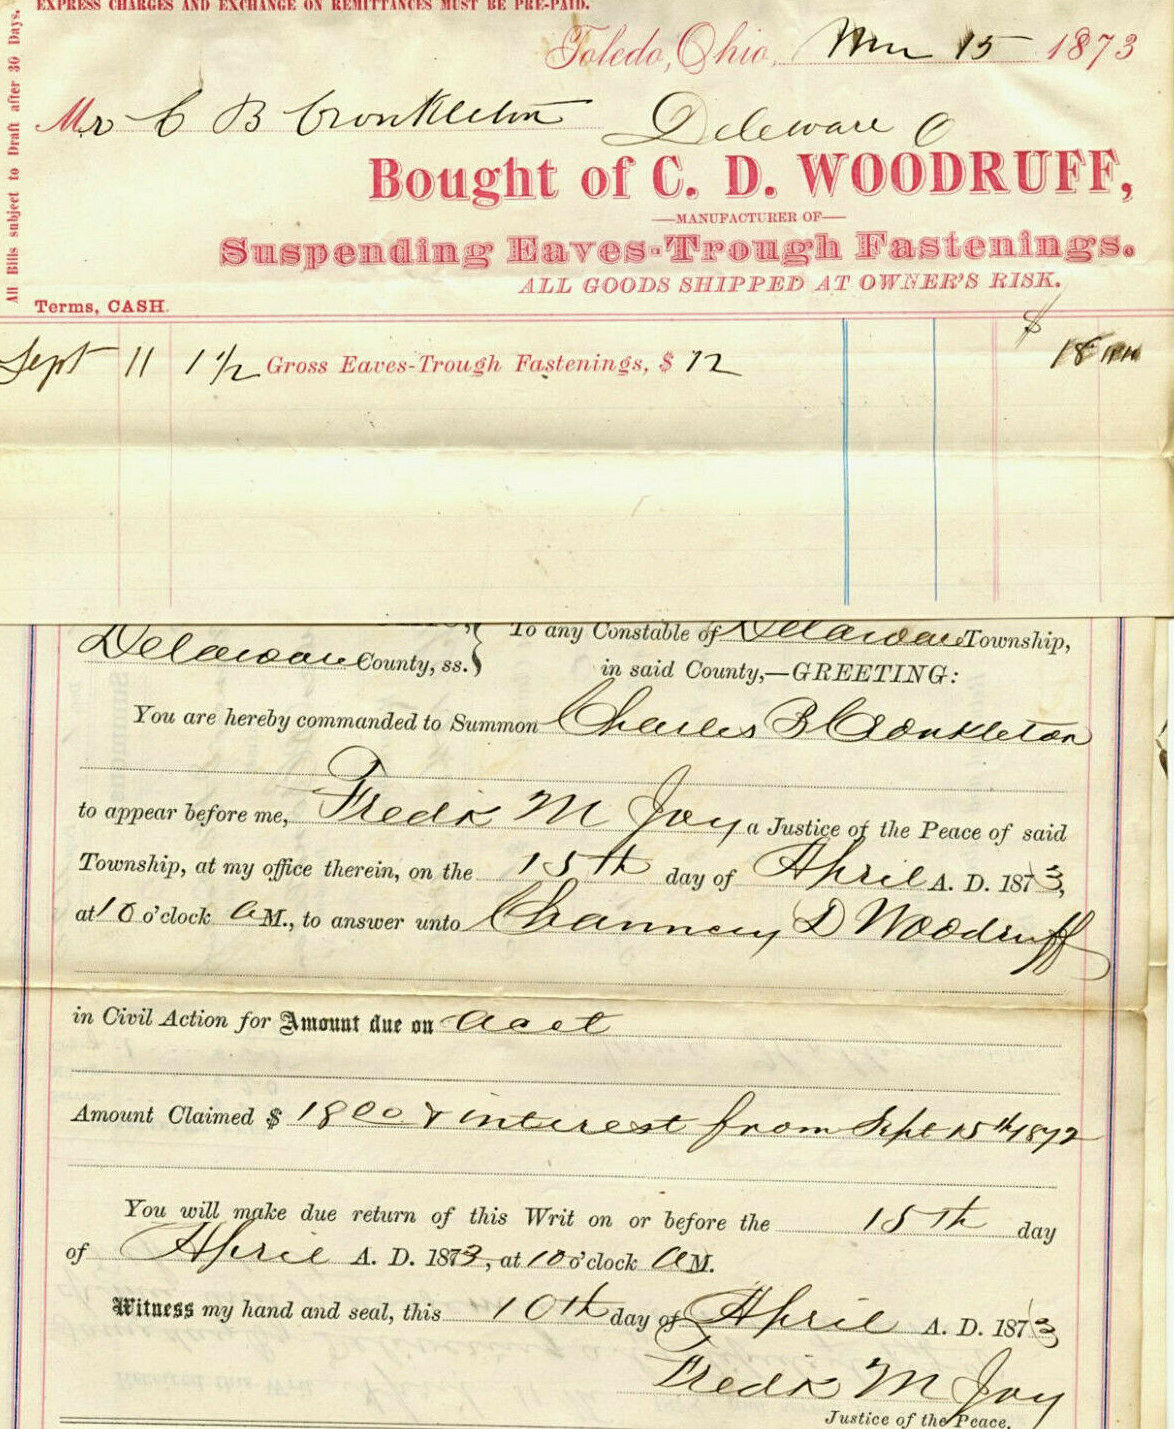 EXPRESS CHARGES AND EXCHANGE ON REMITTANCES MUST BE PRE-PAID.
All Bills subject to Draft after 30 Days.
Toledo, Ohio, 15 1873
Mr C B Cronkleton Deleware O
Bought of C. D. WOODRUFF,
—MANUFACTURER OF—
Suspending Eaves-Trough Fastenings.
ALL GOODS SHIPPED AT OWNER'S RISK.
Terms, CASH.
$
Sept 11 1 1/2 Gross Eaves-Trough Fastenings, $ 12 18
Delaware County, ss. } To any Constable of Delaware Township,
in said County,—GREETING:
You are hereby commanded to Summon Charles B Cronkleton
to appear before me, Fredk M Joy a Justice of the Peace of said
Township, at my office therein, on the 15th day of April A. D. 1873,
at 10 o'clock A M., to answer unto Chauncey D Woodruff
in Civil Action for Amount due on acct
Amount Claimed $ 18 00 & interest from Sept 15th 1872
You will make due return of this Writ on or before the 15th day
of April A. D. 1873, at 10 o'clock A M.
Witness my hand and seal, this 10th day of April A. D. 1873
Fredk M Joy
Justice of the Peace.